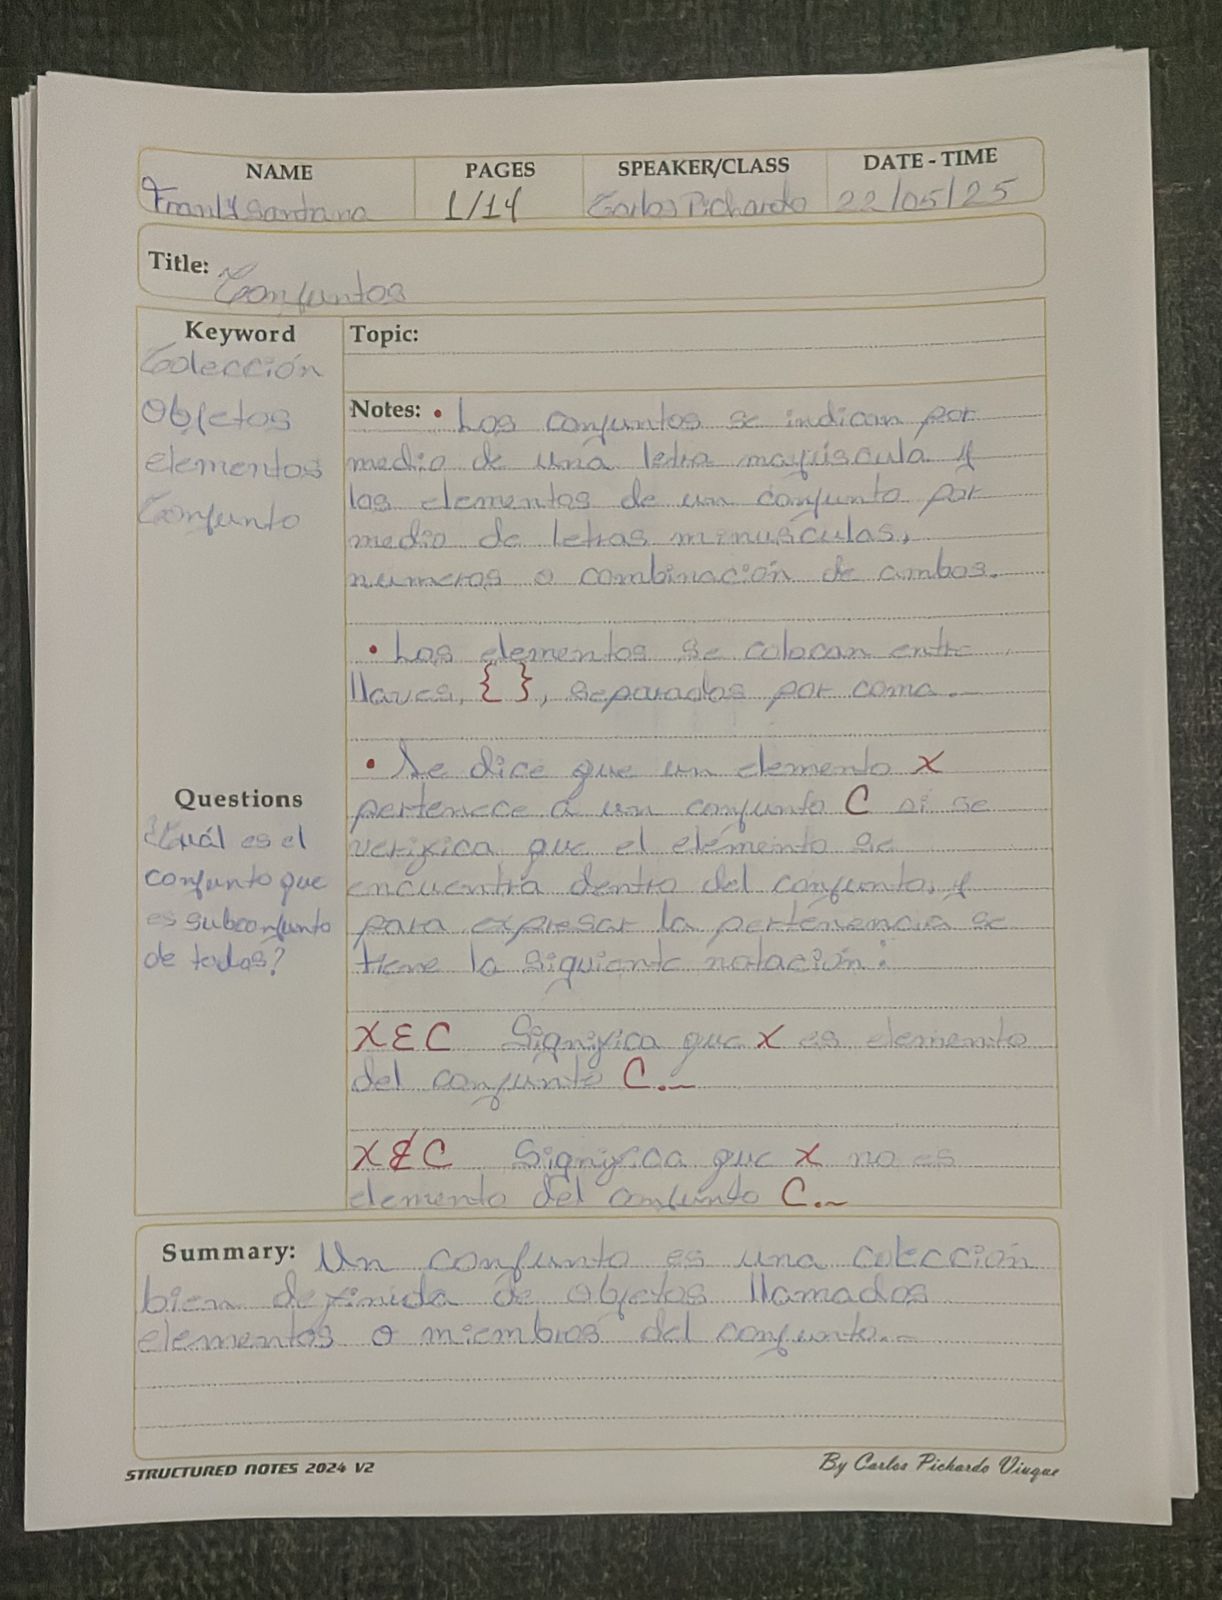 NAME PAGES SPEAKER/CLASS DATE - TIME
Franly Santana 1/14 Carlos Pichardo 22/05/25
Title: Conjuntos
Keyword
Colección
Objetos
elementos
Conjunto
Questions
¿Cuál es el
conjunto que
es subconjunto
de todos?
Topic:
Notes: • Los conjuntos se indican por
medio de una letra mayúscula y
los elementos de un conjunto por
medio de letras minúsculas,
numeros o combinación de ambos.
• Los elementos se colocan entre
llaves, { }, separados por coma.-
• Se dice que un elemento x
pertenece a un conjunto C si se
verifica que el elemento se
encuentra dentro del conjunto, y
para expresar la pertenencia se
tiene la siguiente notación:
x ∈ C Significa que x es elemento
del conjunto C.-
x ∉ C Significa que x no es
elemento del conjunto C.-
Summary: Un conjunto es una colección
bien definida de objetos llamados
elementos o miembros del conjunto.-
STRUCTURED NOTES 2024 V2
By Carlos Pichardo Viuque